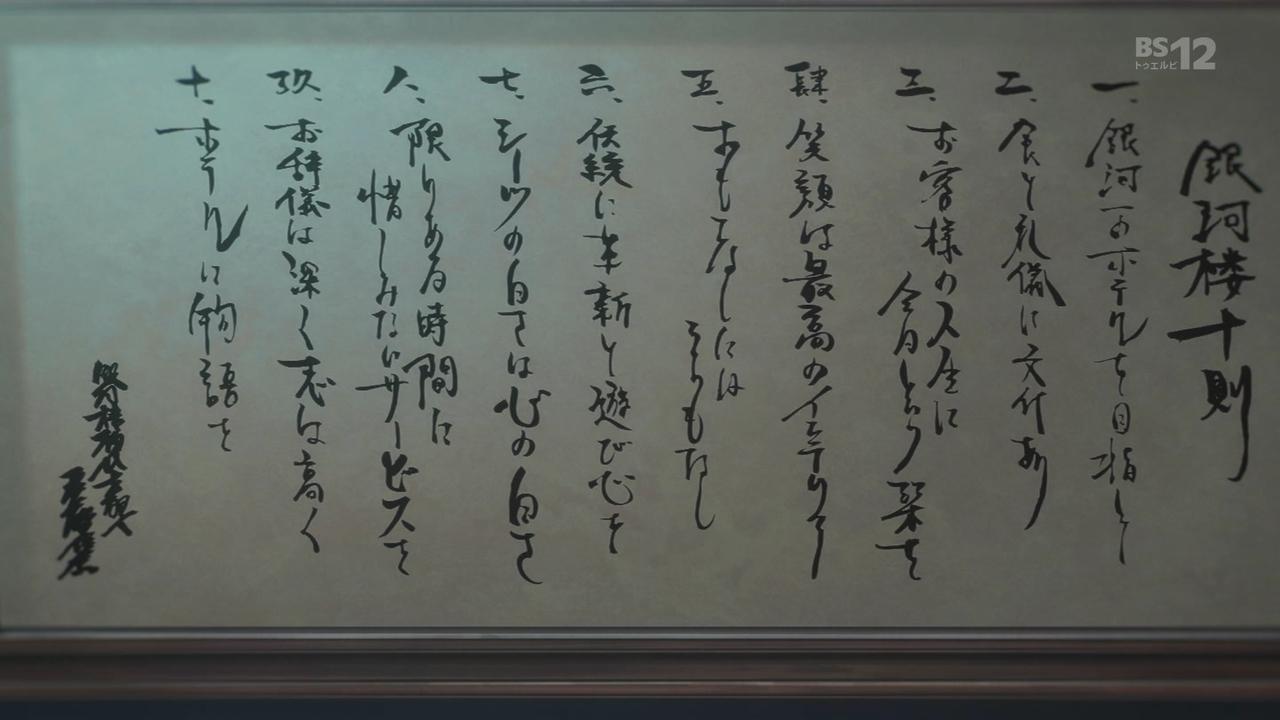 BS12
トゥエルビ
銀河楼十則
一、銀河一のホテルを目指して
二、食と礼儀に文化あり
三、お客様の人生に
今日という栞を
肆、笑顔は最高のインテリア
五、おもてなしには
うらもなし
六、伝統に革新と遊び心を
七、シーツの白さは心の白さ
八、限りある時間に
惜しみないサービスを
玖、お辞儀は深く志は高く
十、ホテルに
を